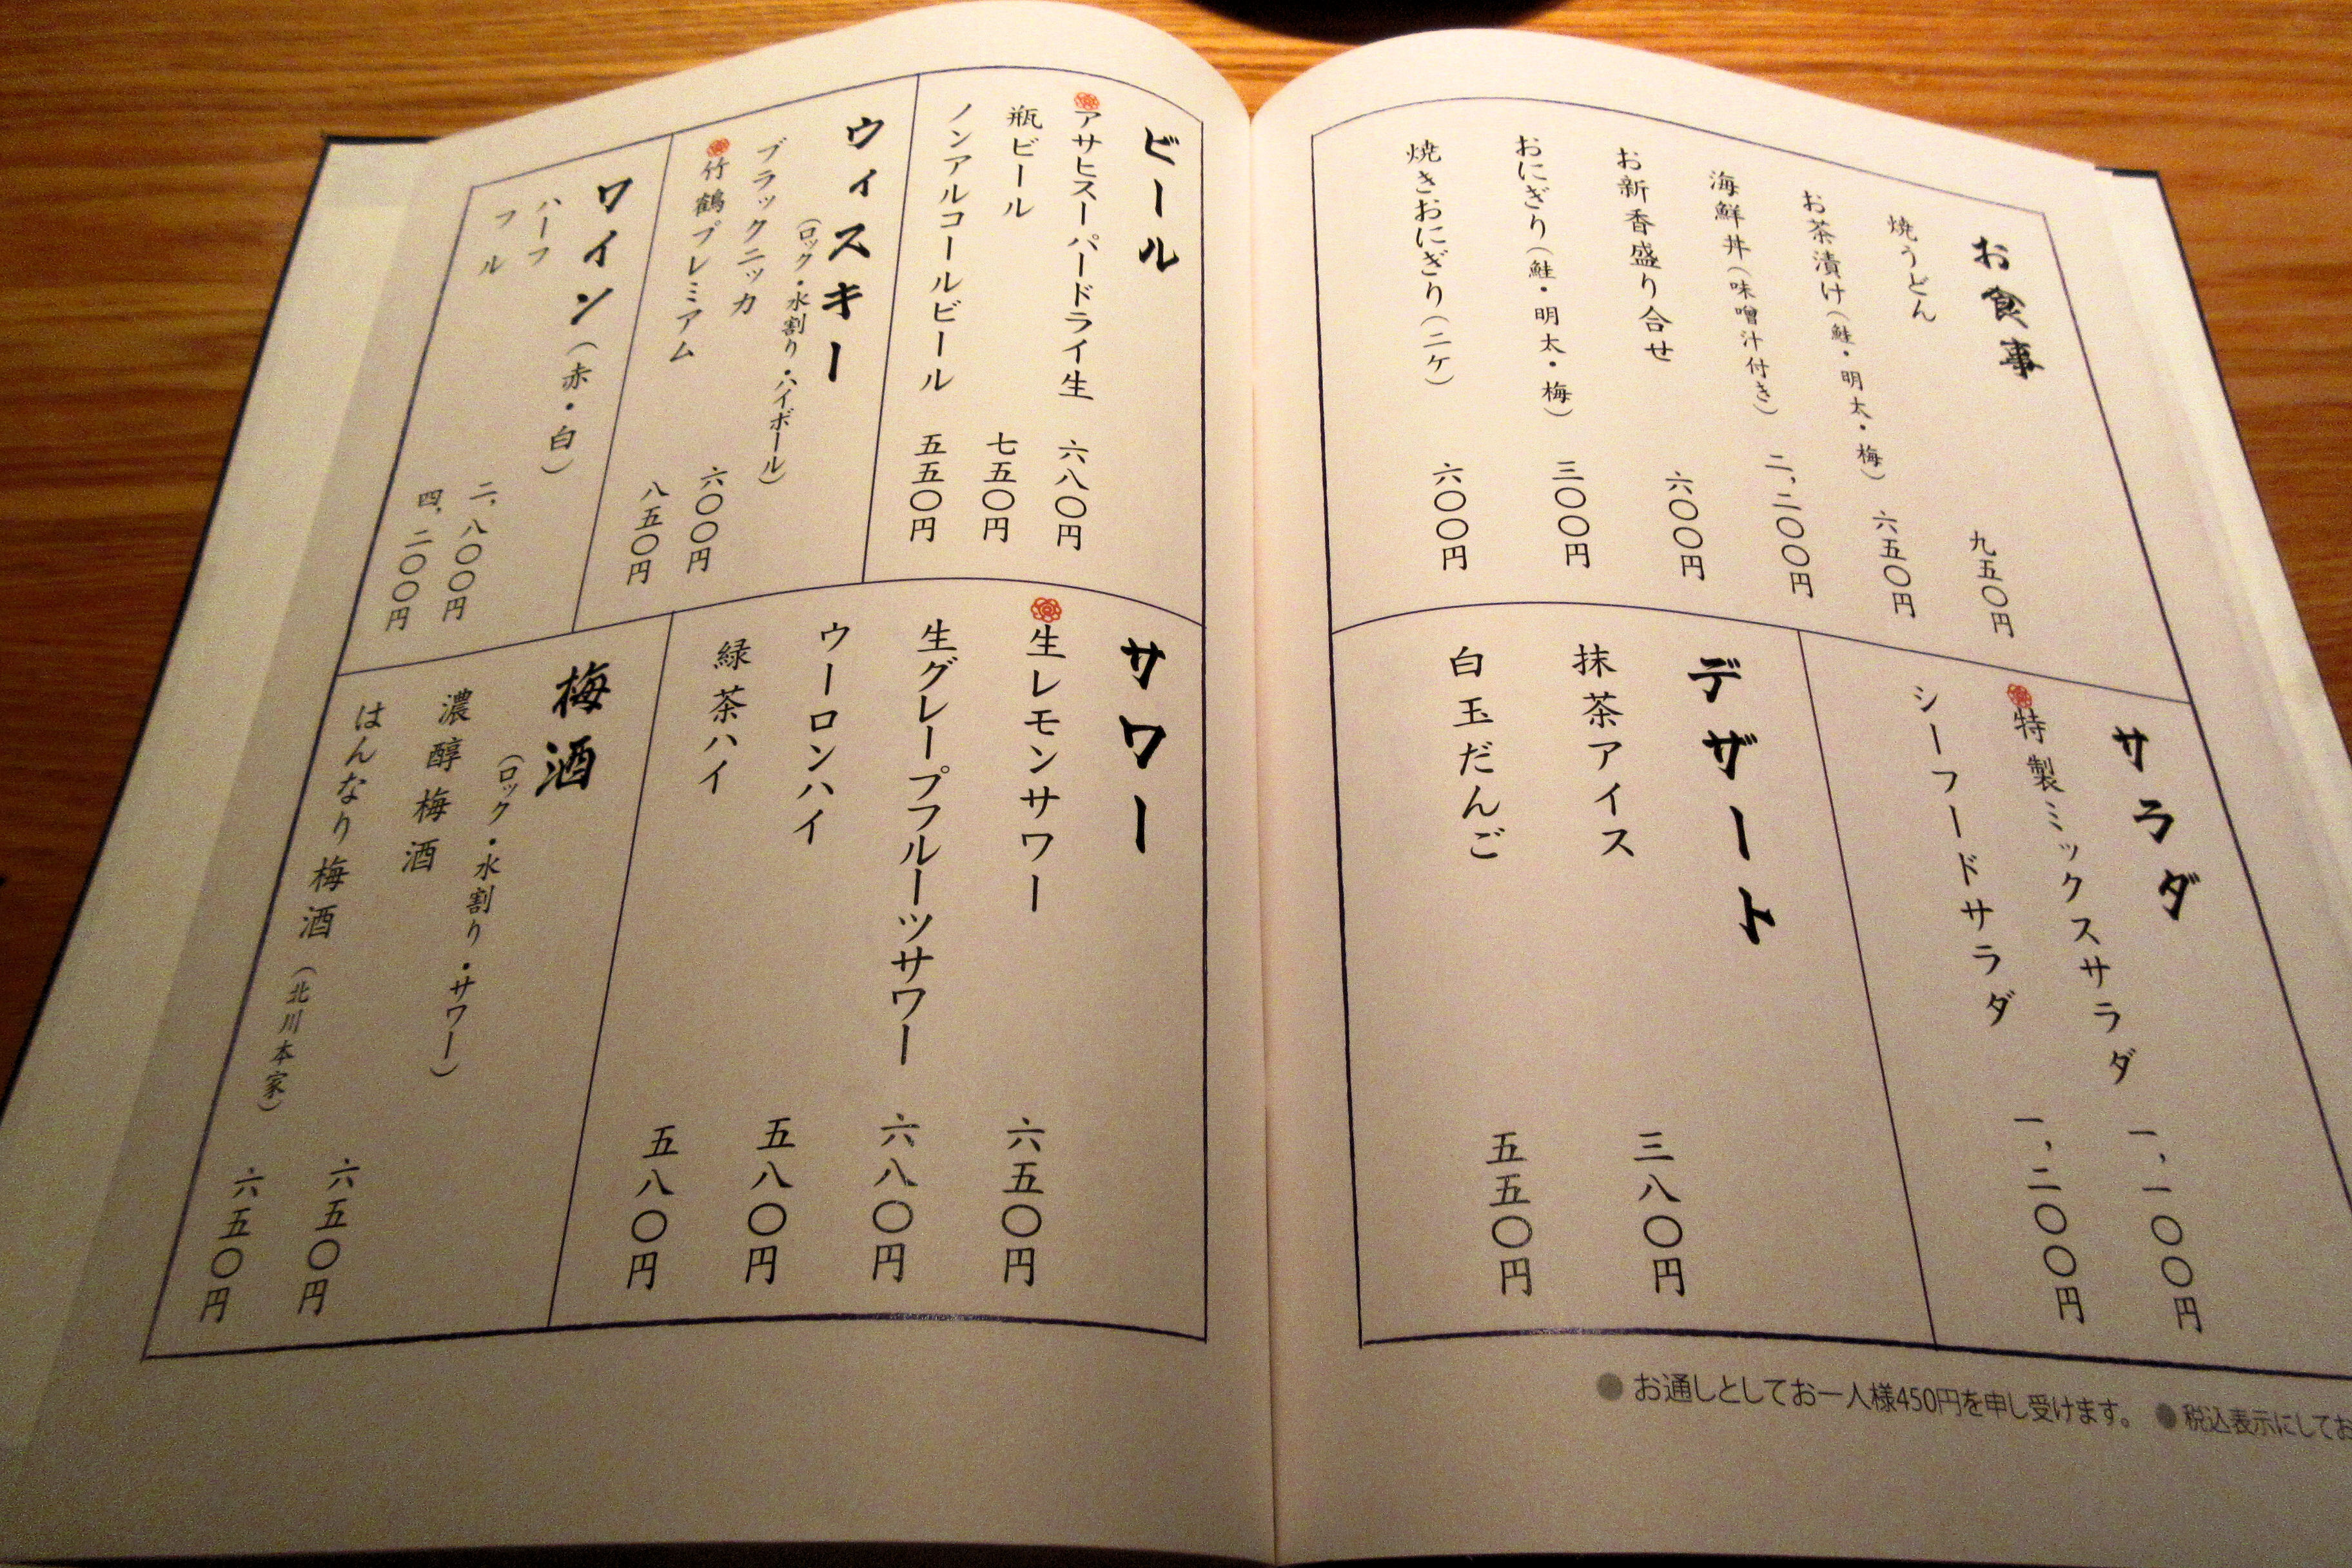 お食事
焼うどん 九五〇円
お茶漬け（鮭・明太・梅） 六五〇円
海鮮丼（味噌汁付き） 二,二〇〇円
お新香盛り合せ 六〇〇円
おにぎり（鮭・明太・梅） 三〇〇円
焼きおにぎり（二ケ） 六〇〇円
サラダ
特製ミックスサラダ 一,一〇〇円
シーフードサラダ 一,二〇〇円
デザート
抹茶アイス 三八〇円
白玉だんご 五五〇円
●お通しとしてお一人様450円を申し受けます。 ●税込表示にしてお
ビール
アサヒスーパードライ生 六八〇円
瓶ビール 七五〇円
ノンアルコールビール 五五〇円
ウィスキー
（ロック・水割り・ハイボール）
ブラックニッカ 六〇〇円
竹鶴プレミアム 八五〇円
ワイン（赤・白）
ハーフ 二,八〇〇円
フル 四,二〇〇円
サワー
生レモンサワー 六五〇円
生グレープフルーツサワー 六八〇円
ウーロンハイ 五八〇円
緑茶ハイ 五八〇円
梅酒
（ロック・水割り・サワー）
濃醇梅酒 六五〇円
はんなり梅酒（北川本家） 六五〇円